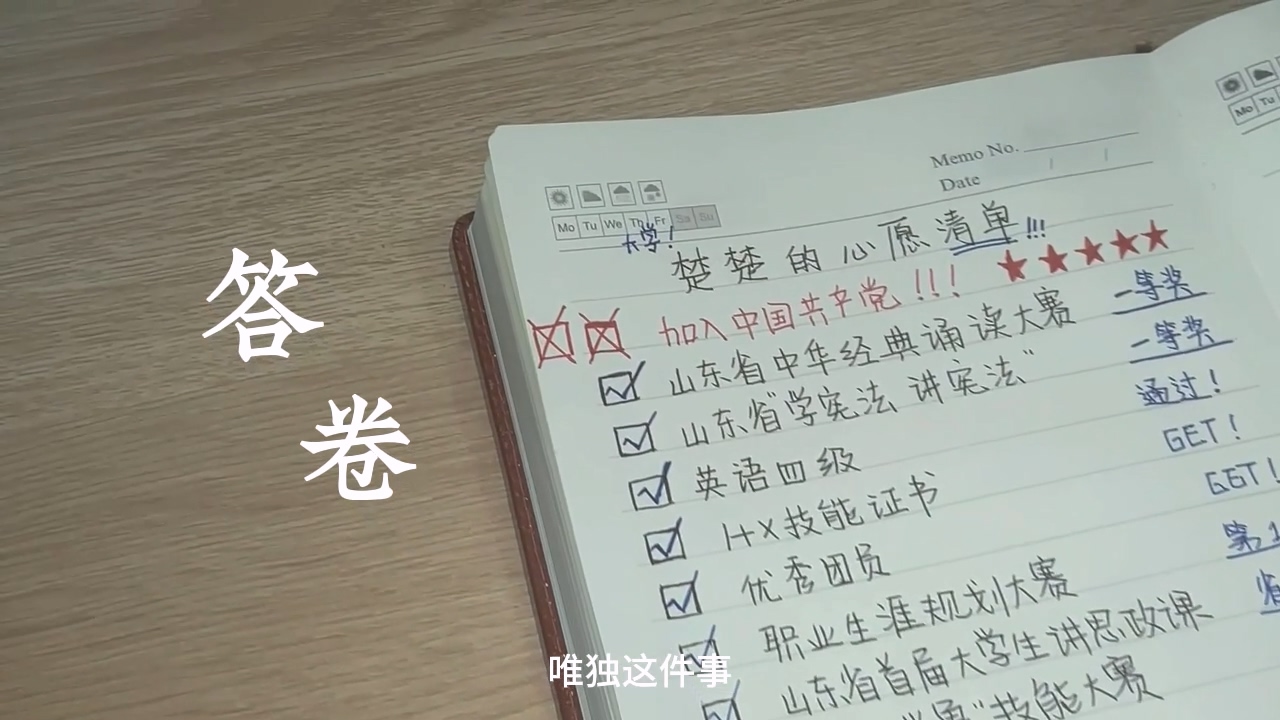 答
卷
Memo No.
Date
Mo Tu We Th Fr Sa Su
大学!
楚楚的心愿清单!!!
加入中国共产党!!! ★★★★★
山东省中华经典诵读大赛 一等奖
山东省"学宪法 讲宪法" 一等奖
英语四级 通过!
1+X技能证书 GET!
优秀团员 GET!
职业生涯规划大赛 第1
山东省首届大学生讲思政课 省
"技能大赛
唯独这件事
Mo Tu